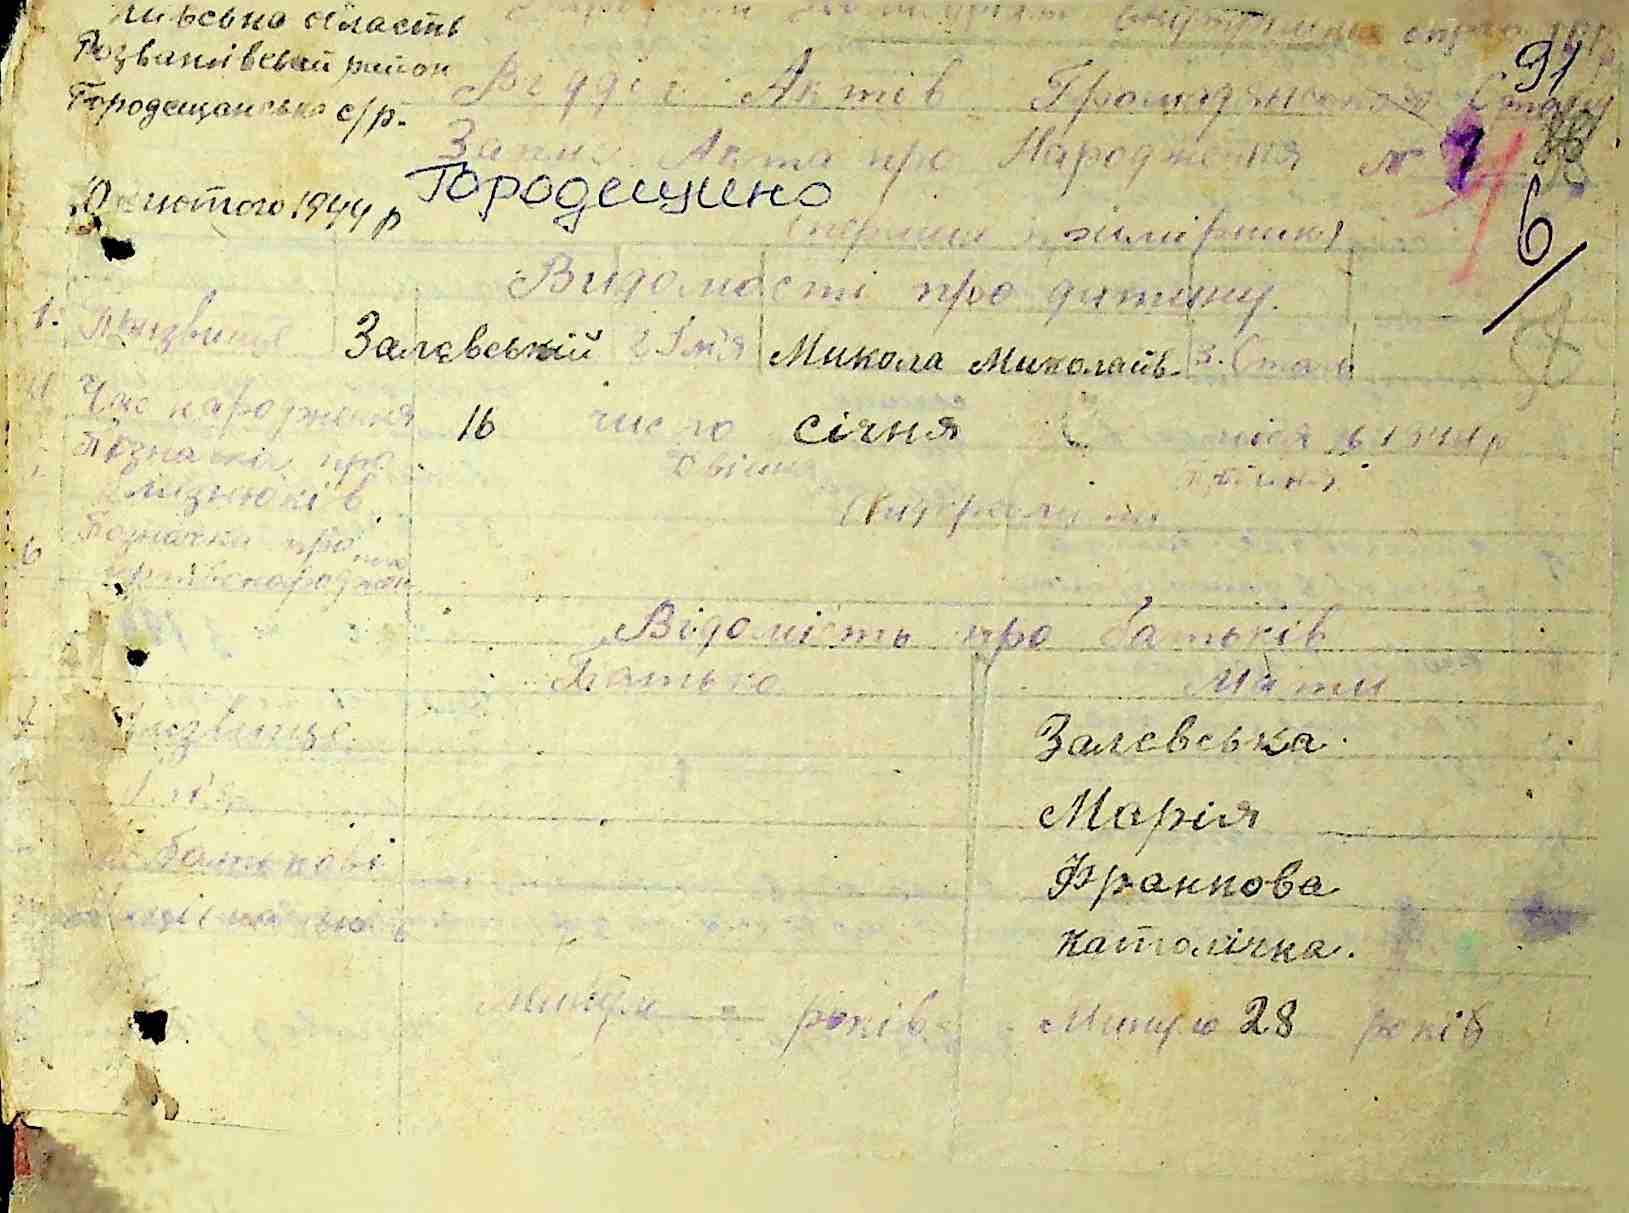 область
Розванівський район 91
Городещанська с/р.
Відділ Актів Громадянського Стану
Запис Акта про Народження № 1
Городещино
лютого 1944 р
6/
(перший примірник)
Відомості про дитину.
1. Призвище Залєвський 2 Імя Микола Миколаїв. 3. Стать
Час народження 16 число січня міся 1944 р
Позначка про
близнюків
6 Позначка про
мертвонароджен
Відомість про батьків
Батько Мати
Призвище Залєвська.
Імя Марія
батькові Франкова
католічка.
Минуло років Минуло 28 років